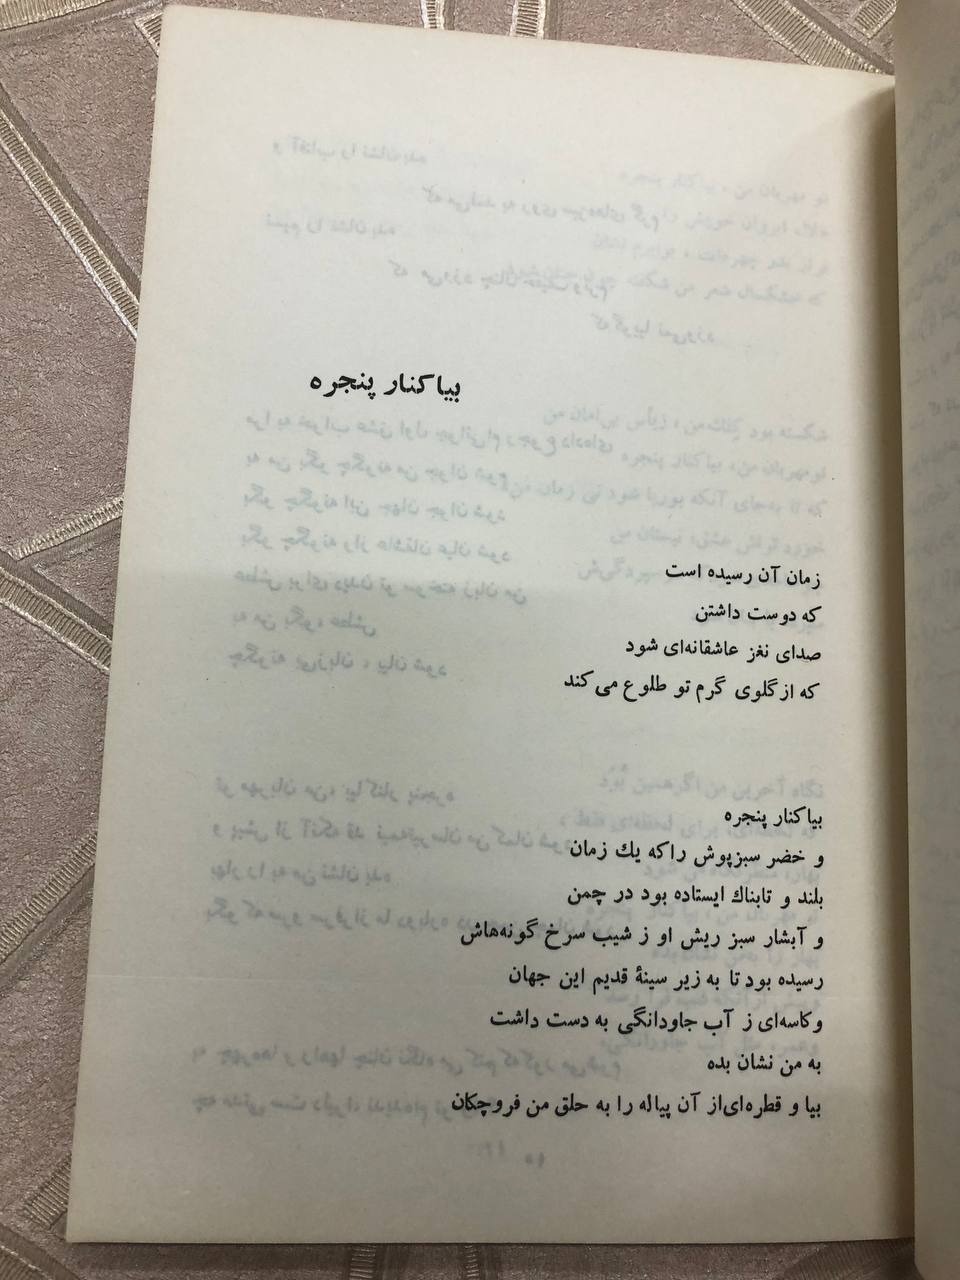 بیا کنار پنجره
زمان آن رسیده است
که دوست داشتن
صدای نغز عاشقانه‌ای شود
که از گلوی گرم تو طلوع می‌کند
بیا کنار پنجره
و خضر سبزپوش را که یك زمان
بلند و تابناك ایستاده بود در چمن
و آبشار سبز ریش او ز شیب سرخ گونه‌هاش
رسیده بود تا به زیر سینهٔ قدیم این جهان
و کاسه‌ای ز آب جاودانگی به دست داشت
به من نشان بده
بیا و قطره‌ای از آن پیاله را به حلق من فروچکان